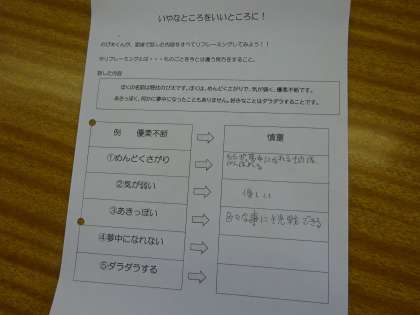 いやなところをいいところに！
のび太くんが、面接で話した内容をすべてリフレーミングしてみよう！！
※リフレーミングとは・・・ものごとを今とは違う見方をすること。
話した内容
ぼくの名前は野比のび太です。ぼくは、めんどくさがりで、気が弱く、優柔不断です。
あきっぽく、何かに夢中になったこともありません。好きなことはダラダラすることです。
例 優柔不断
慎重
①めんどくさがり
②気が弱い
優しい
③あきっぽい
色々な事に挑戦できる
④夢中になれない
⑤ダラダラする